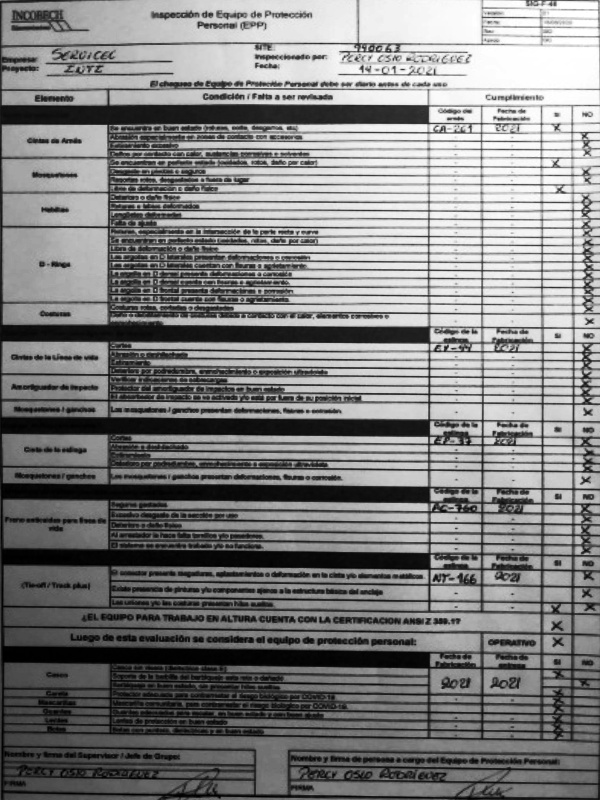 SIG-F-48
INCOBECH
Inspección de Equipo de Protección
Personal (EPP)
Empresa: SERVICEL
Proyecto: INTI
SITE: 940063
Inspeccionado por: PERCY OSIO RODRIGUEZ
Fecha: 14-01-2021
El chequeo de Equipo de Protección Personal debe ser diario antes de cada uso
Elemento Condición / Falta a ser revisada Cumplimiento
Código del arnés Fecha de Fabricación SI NO
Cintas de Arnés
Se encuentra en buen estado (roturas, corte, desgarros, etc) CA-261 2021 X
Abrasión especialmente en zonas de contacto con accesorios - -
Estiramiento excesivo - -
Daños por contacto con calor, sustancias corrosivas o solventes - -
Mosquetones
Se encuentran en perfecto estado (oxidados, rotos, daño por calor) - - X
Desgaste en pivotes o seguros - -
Resortes rotos, desgastados o fuera de lugar - -
Libre de deformación o daño físico - - X
Hebillas
Deterioro o daño físico - -
Roturas o fallas deformados - -
Lengüetas deformadas - -
Falta de ajuste - -
D - Rings
Roturas, especialmente en la intersección de la parte recta y curva - -
Se encuentran en perfecto estado (oxidados, rotos, daño por calor) - -
Libre de deformación o daño físico - -
Las argollas en D laterales presentan deformaciones o corrosión - -
Las argollas en D laterales cuentan con fisuras o agrietamiento. - -
La argolla en D dorsal presenta deformaciones o corrosión - -
La argolla en D dorsal cuenta con fisuras o agrietamiento. - -
La argolla en D frontal presenta deformaciones o corrosión. - -
La argolla en D frontal cuenta con fisuras o agrietamiento. - -
Costuras
Costuras rotas, cortadas o desgastadas - -
Código de la eslinga Fecha de Fabricación SI NO
Cintas de la Línea de vida
Cortes EV-44 2021
Abrasión o deshilachado - -
Estiramiento - -
Deterioro por podredumbre, enmohecimiento o exposición ultravioleta - -
Amortiguador de impacto
Verificar indicaciones de sobrecargas - -
Protector del amortiguador de impactos en buen estado - -
El absorbedor de impacto se ve activado y/o está por fuera de su posición inicial - -
Mosquetones / ganchos Los mosquetones / ganchos presentan deformaciones, fisuras o corrosión. - - X
Código de la eslinga Fecha de Fabricación SI NO
Cinta de la eslinga
Cortes EP-37 2021
Abrasión o deshilachado - -
Estiramiento - -
Deterioro por podredumbre, enmohecimiento o exposición ultravioleta - -
Mosquetones / ganchos Los mosquetones / ganchos presentan deformaciones, fisuras o corrosión. - - X
Código de la eslinga Fecha de Fabricación SI NO
Freno anticaídas para línea de vida
Seguros gastados. AC-760 2021
Excesivo desgaste de la sección por uso - -
Deterioro o daño físico - -
Al arrestador le hace falta tornillos y/o pasadores. - -
El sistema se encuentra trabado y/o no funciona. - -
Código de la eslinga Fecha de Fabricación SI NO
(Tie-off / Track plus)
El conector presenta rasgaduras, aplastamientos o deformación en la cinta y/o elementos metálicos NT-166 2021 X
Existe presencia de pinturas y/o componentes ajenos a la estructura básica del anclaje - -
Las uniones y/o las costuras presentan hilos sueltos. - - X X
¿EL EQUIPO PARA TRABAJO EN ALTURA CUENTA CON LA CERTIFICACION ANSI Z 359.1? X
Luego de esta evaluación se considera el equipo de protección personal: OPERATIVO X
Fecha de Fabricación Fecha de entrega SI NO
Casco
2021 2021
Soporte de la barbilla del barbiquejo esta roto o dañado
Barbiquejo en buen estado, sin presentar hilos sueltos.
Careta Protector adecuado para contrarrestar el riesgo biológico por COVID-19. - - X
Mascarillas Mascarilla comunitaria, para contrarrestar el riesgo biológico por COVID-19. - - X
Guantes Guantes adecuados para escalar, en buen estado y con buen ajuste - - X
Lentes Lentes de protección en buen estado - - X
Botas Botas con puntera, dieléctricas y en buen estado - - X
Nombre y firma del Supervisor / Jefe de Grupo: Nombre y firma de persona a cargo del Equipo de Protección Personal:
PERCY OSIO RODRIGUEZ PERCY OSIO RODRÍGUEZ
FIRMA FIRMA